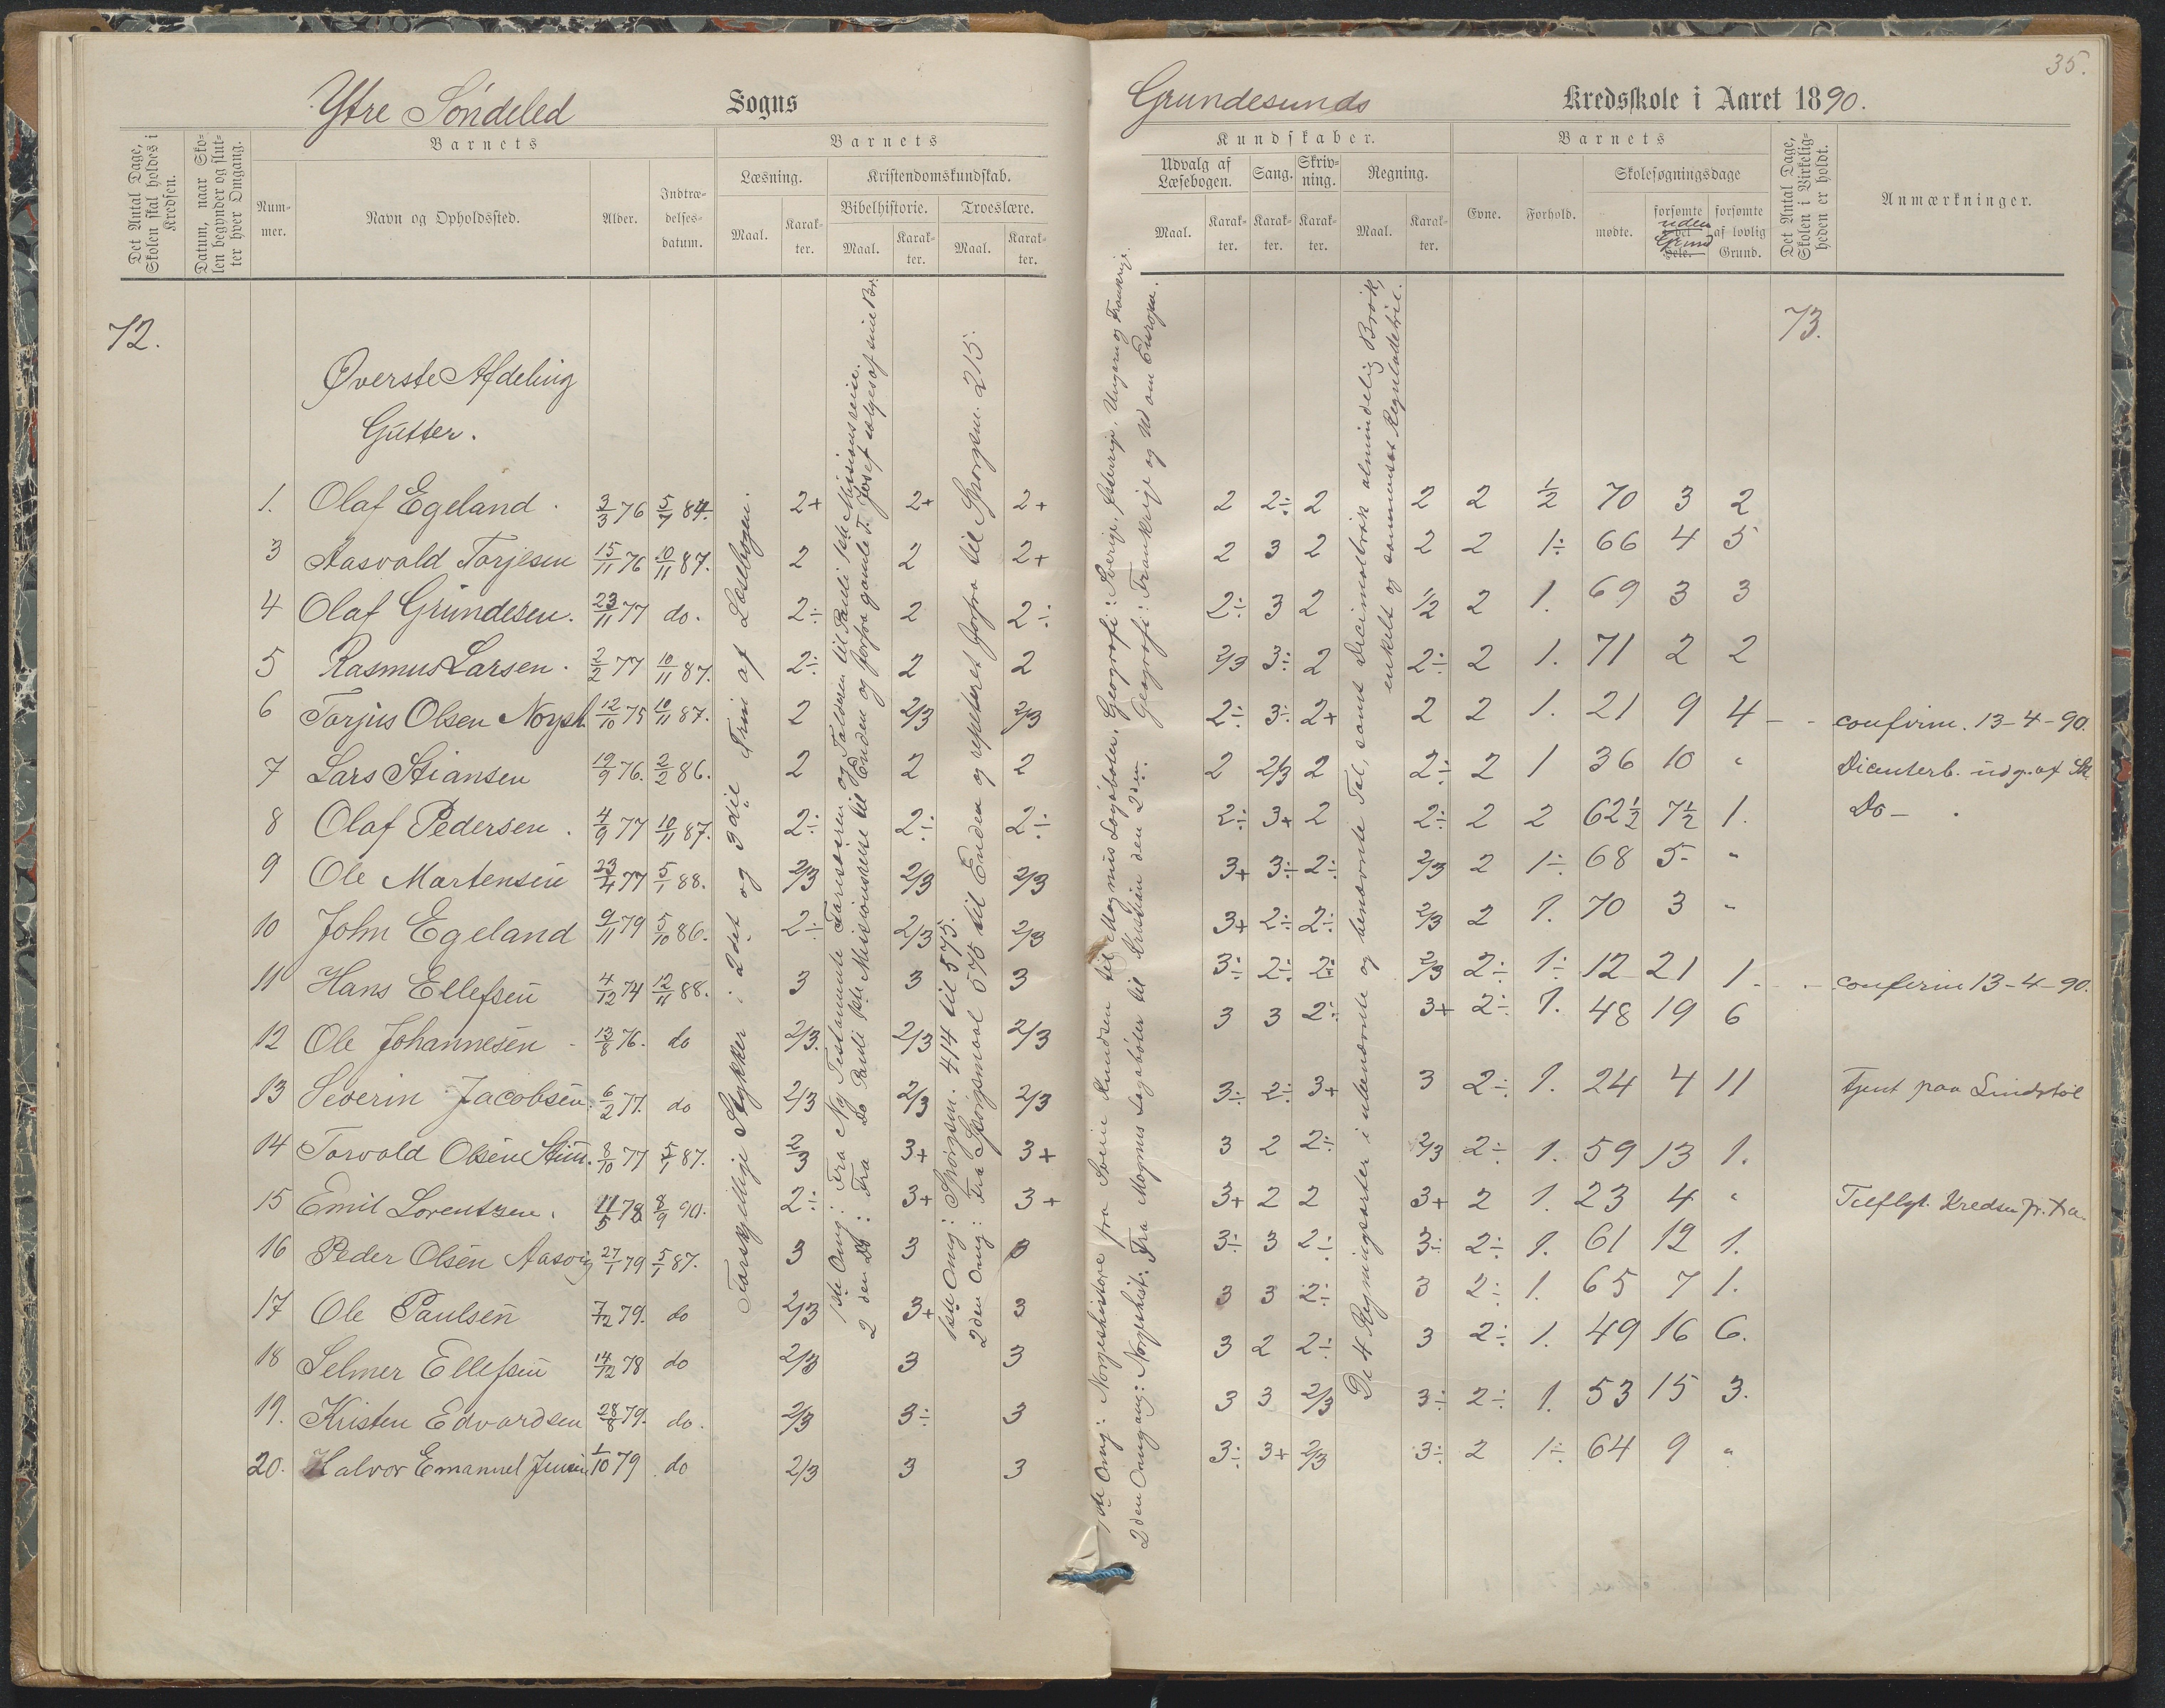 Ytre Söndeled Sogns
Det Antal Dage, Skolen skal holdes i Kredsen.
Datum, naar Skolen begynder og slutter hver Omgang.
Barnets
Nummer.
Navn og Opholdssted.
Alder.
Indtrædelsesdatum.
Barnets
Læsning.
Maal.
Karakter.
Kristendomskundskab.
Bibelhistorie.
Maal.
Karakter.
Troeslære.
Maal.
Karakter.
72.
Øverste Afdeling
Gutter.
1. Olaf Egeland. 3/3 76 5/7 84. 2+ 2+ 2+
3 Aasvald Torjesen 15/11 76 10/11 87. 2 2 2+
4 Olaf Grundesen. 23/11 77 do. 2÷ 2 2÷
5 Rasmus Larsen. 2/2 77 10/11 87. 2÷ 2 2
6 Torjus Olsen 12/10 75 10/11 87. 2 2/3 2/3
7 Lars Stiansen 19/9 76. 2/2 86. 2 2 2
8 Olaf Pedersen. 4/9 77 10/11 87. 2÷ 2÷ 2÷
9 Ole Martensen 23/4 77 5/1 88. 2/3 2/3 2/3
10 John Egeland 9/11 79 5/10 86. 2÷ 2/3 2/3
11 Hans Ellefsen 4/12 74 12/11 88. 3 3 3
12 Ole Johannesen 13/8 76. do 2/3. 2/3 2/3
13 Severin Jacobsen. 6/2 77. do 2/3 2/3 2/3
14 Torvald Olsen 8/10 77 5/1 87. 2/3 3+ 3+
15 Emil Lorentzen. 11/5 78 8/9 90. 2÷ 3+ 3+
16 Peder Olsen Aasvig 27/1 79 5/1 87. 3 3 3
17 Ole Paulsen 7/12 79. do 2/3 3+ 3
18 Selmer Ellefsen 14/12 78 do 2/3 3 3
19. Kristen Edvardsen 28/8 79. do. 2/3 3÷ 3
20. Halvor Emanuel Jensen 1/10 79 do 2/3 3 3
Forskjellige Stykker i 2det og 3die Trin af Læsebogen.
1ste Omg: Fra Ny Testamente Fariseeren og Tolderen til Pauli 1ste Missionsreise.
2den Do: Fra Do Pauli 1ste Missionsreise til Enden og forfra gamle T. Josef sælges af sine Br.
1ste Omg: Spörgsm. 414 til 575.
2den Omg: Fra Spörgsmaal 575 til Enden og repeteret forfra til Sporgsm. 215.
35.
Grundesunds Kredsskole i Aaret 1890.
Kundskaber.
Udvalg af Læsebogen.
Maal.
Karakter.
Sang.
Karakter.
Skrivning.
Karakter.
Regning.
Maal.
Karakter.
Barnets
Evne.
Forhold.
Skolesøgningsdage
mødte.
forsømte uden Grund
forsømte af lovlig Grund.
Det Antal Dage, Skolen i Virkeligheden er holdt.
Anmærkninger.
73.
1ste Omg: Norgeshistore fra Svein Knudsen til Magnus Lagabøter. Geografi: Sverige, Østerige, Ungarn og Frankrige.
2den Omgang: Norgeshist: Fra Magnus Lagabøter til Kristian den 2den. Geografi: Frankrige og Ud om Europa.
De 4 Regningsarter i ubenævnte og benævnte Tal, samt Decimalbrøk almindelig Brøk, enkelt og sammensat Reguladetrie.
2 2÷ 2 2 2 1/2 70 3 2
2 3 2 2 2 1÷ 66 4 5
2÷ 3 2 1/2 2 1. 69 3 3
2/3 3÷ 2 2÷ 2 1. 71 2 2
2÷ 3÷ 2+ 2 2 1. 21 9 4 confirm. 13-4-90.
2 2/3 2 2÷ 2 1 36 10 " udg. af
2÷ 3+ 2 2÷ 2 2 62½ 7½ 1. Do
3+ 3÷ 2÷ 2/3 2 1÷ 68 5 "
3+ 2÷ 2÷ 2/3 2 1. 70 3 "
3÷ 2÷ 2÷ 2/3 2÷ 1÷ 12 21 1 confirm 13-4-90.
3 3 2÷ 3+ 2÷ 1. 48 19 6
3÷ 2÷ 3+ 3 2÷ 1. 24 4 11 tjent paa Lindstöl
3 2 2÷ 2/3 2÷ 1. 59 13 1.
3+ 2 2 3+ 2 1. 23 4 " Tilflyt. Kredsen
3÷ 3 2÷ 3÷ 2÷ 1. 61 12 1.
3 3 2÷ 3 2÷ 1. 65 7 1.
3 2 2÷ 3 2÷ 1. 49 16 6.
3 3 2/3 3÷ 2÷ 1. 53 15 3.
3÷ 3+ 2/3 3÷ 2 1÷ 64 9 "